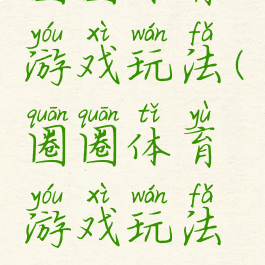 yóu xì wán fǎ
游戏玩法(
quān quān tǐ yù
圈圈体育
yóu xì wán fǎ
游戏玩法